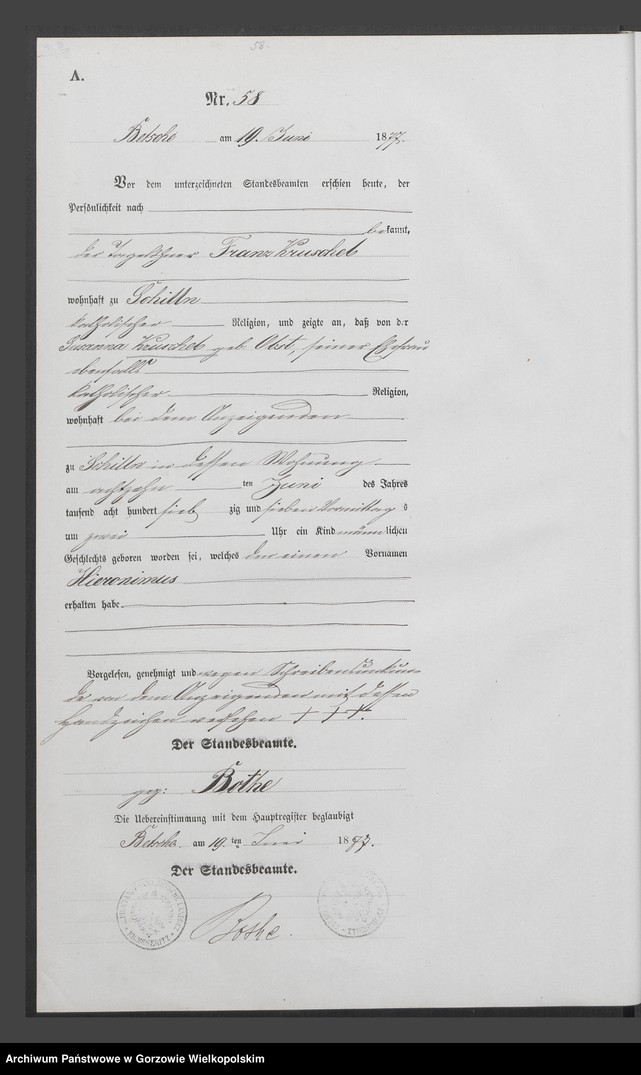 58.
A.
Nr. 58
Betsche am 19. Juni 1877.
Vor dem unterzeichneten Standesbeamten erschien heute, der
Persönlichkeit nach
bekannt,
der Tagelöhner Franz Kruschel
wohnhaft zu Schilln
katholischer Religion, und zeigte an, daß von der
Susanna Kruschel geb. Obst, seiner Ehefrau
ebenfalls
katholischer Religion,
wohnhaft bei dem Anzeigenden
zu Schilln in dessen Wohnung
am achtzehn ten Juni des Jahres
tausend acht hundert sieb zig und sieben Vormittag s
um zwei Uhr ein Kind männlichen
Geschlechts geboren worden sei, welches den einen Vornamen
Hieronimus
erhalten habe.
Vorgelesen, genehmigt und wegen Schreibensunkun-
de von dem Anzeigenden mit dessen
Handzeichen versehen + + +.
Der Standesbeamte.
gez: Bothe
Die Uebereinstimmung mit dem Hauptregister beglaubigt
Betsche am 19 ten Juni 1877.
Der Standesbeamte.
Bothe.
Archiwum Państwowe w Gorzowie Wielkopolskim